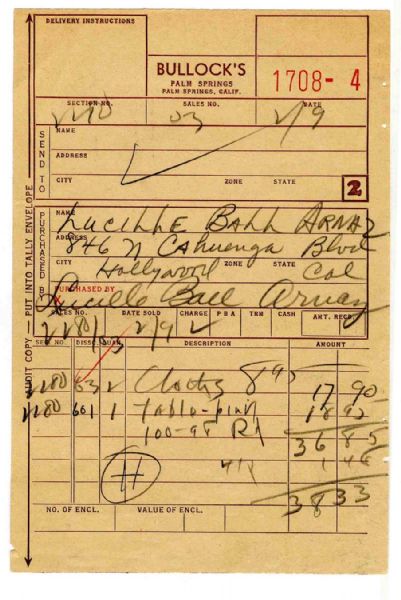 DELIVERY INSTRUCTIONS
BULLOCK'S
PALM SPRINGS
PALM SPRINGS, CALIF.
1708- 4
SECTION NO. SALES NO. DATE
2280 03 2/9
SEND TO
NAME
ADDRESS
CITY ZONE STATE
2
PURCHASED BY
NAME
LUCILLE BALL ARNAZ
ADDRESS
846 N Cahuenga Blvd
CITY ZONE STATE
Hollywood Cal
PURCHASED BY
X Lucille Ball Arnaz
SALES NO. DATE SOLD CHARGE P B A TKM CASH AMT. RECD.
2280/03 2/9
SEC. NO. DISSEC. QUAN. DESCRIPTION AMOUNT
2280 53 2 895 17 90
2280 601 1 18 95
36 85
4% 1 48
38 33
NO. OF ENCL. VALUE OF ENCL.
AUDIT COPY — PUT INTO TALLY ENVELOPE